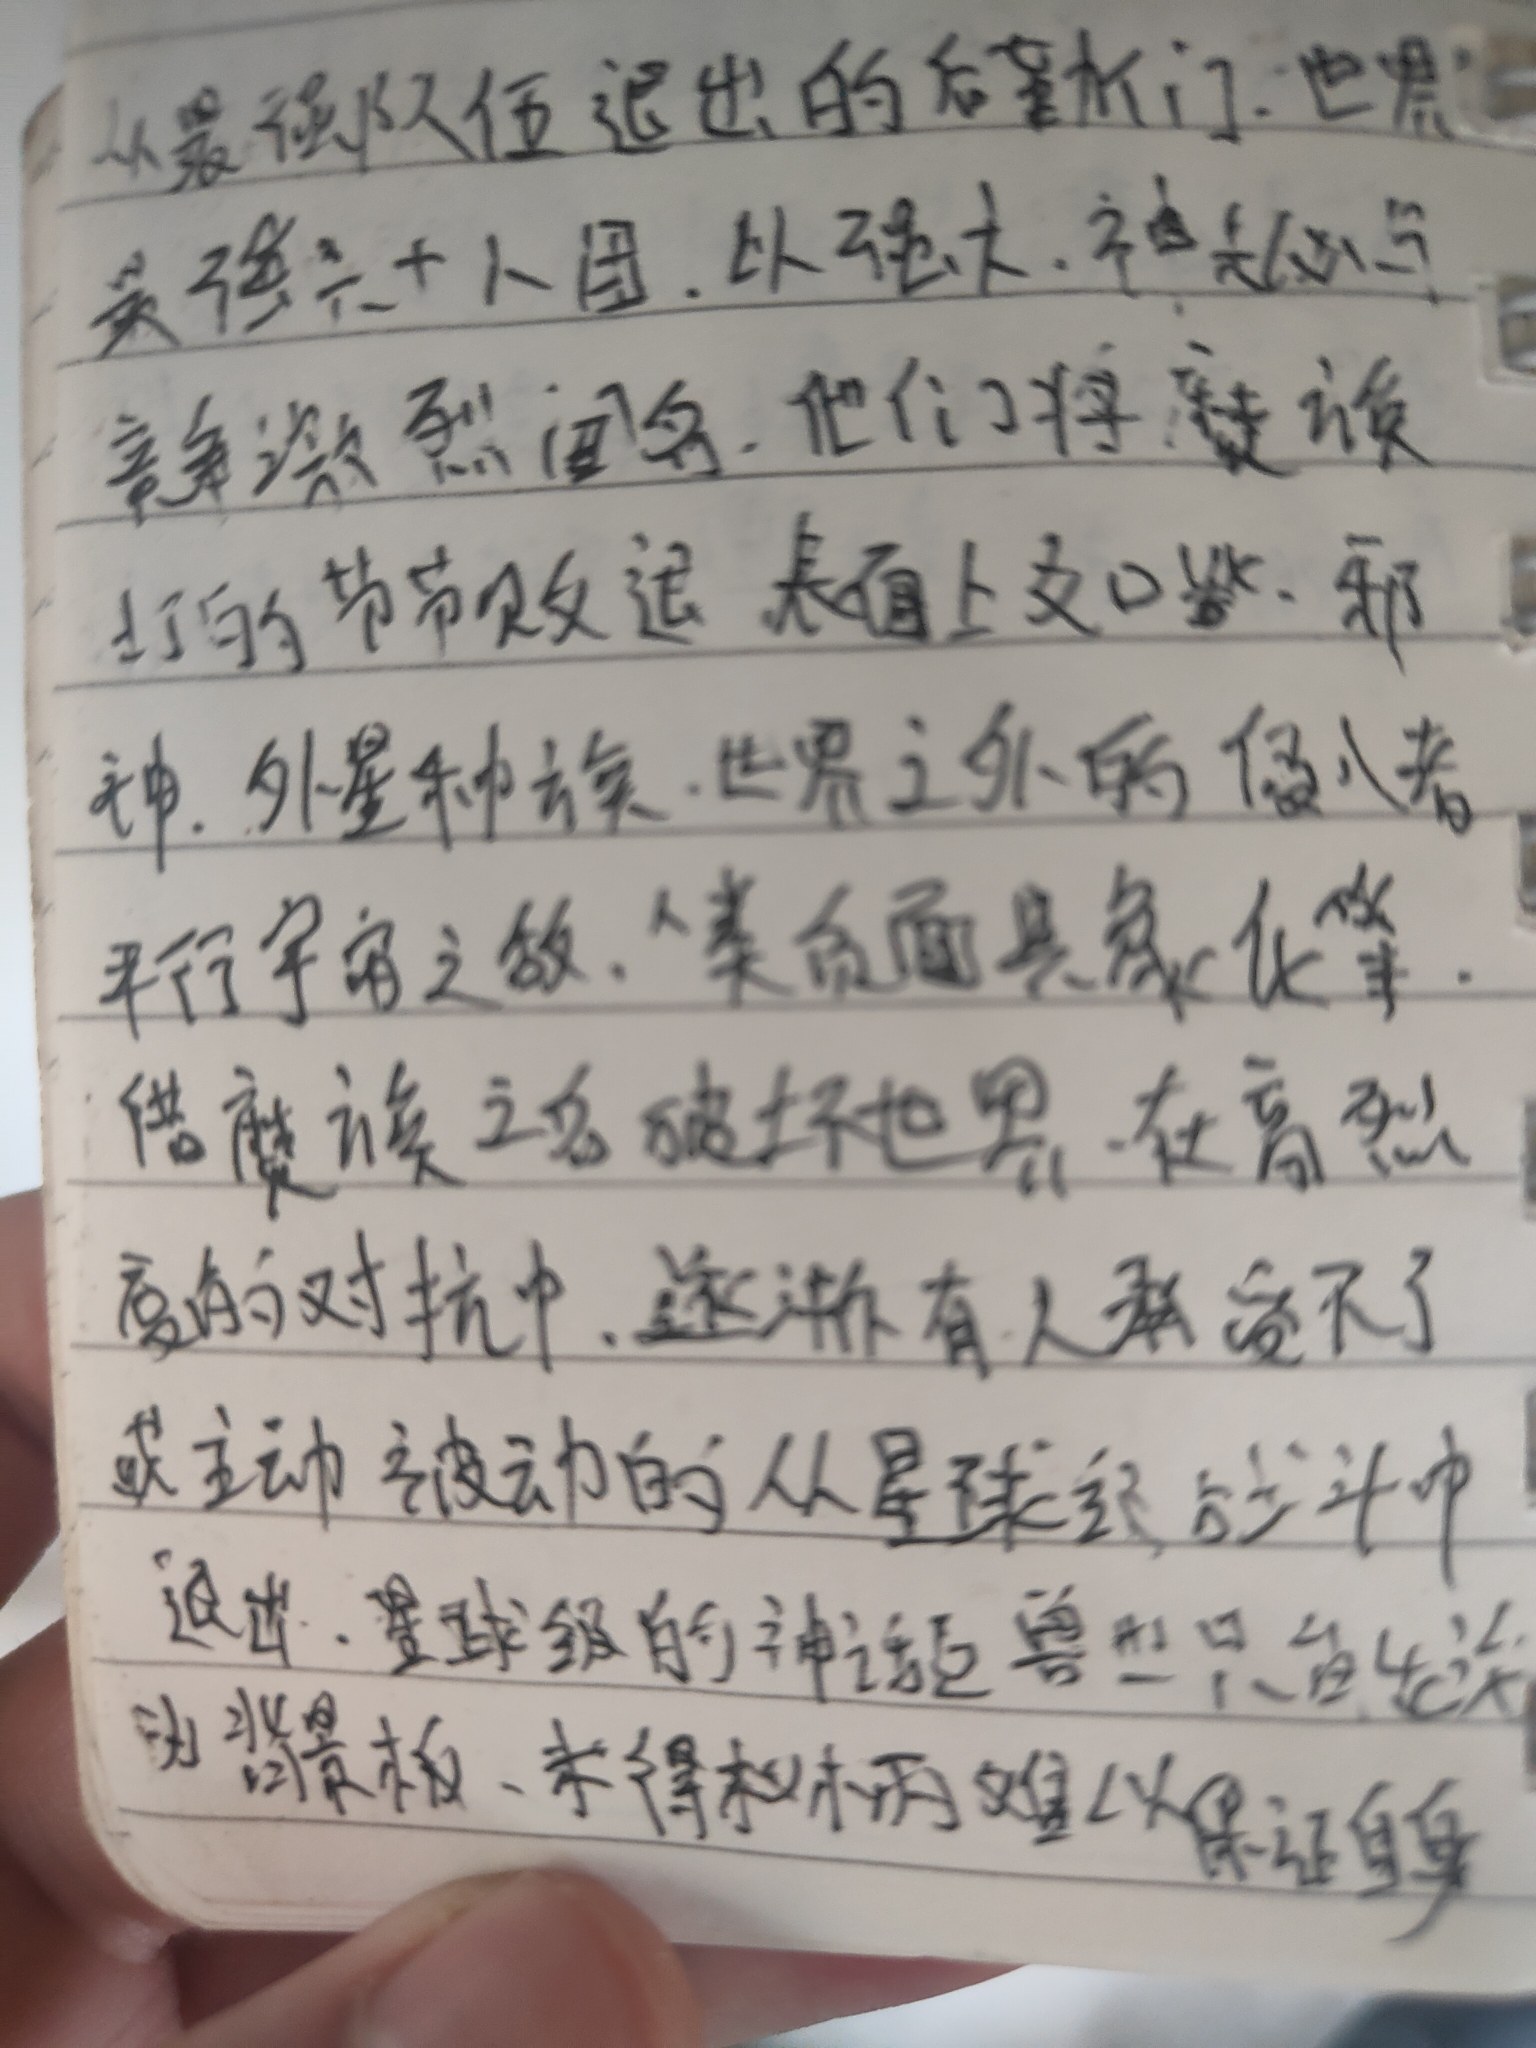 从最强队伍退出的后辈们.世界
最强六十人团.以强大.神秘与
竞争激烈闻名.他们将魔族
打的节节败退 表面上 邪
神.外星种族.世界之外的侵入者
平行宇宙之敌.人类负面具象化等.
借魔族之名破坏世界.在高烈
度的对抗中.逐渐有人承受不了
或主动被动的从星球级战斗中
退出.星球级的神话巨兽 只能
为背景板、未得权柄两难以保证自身